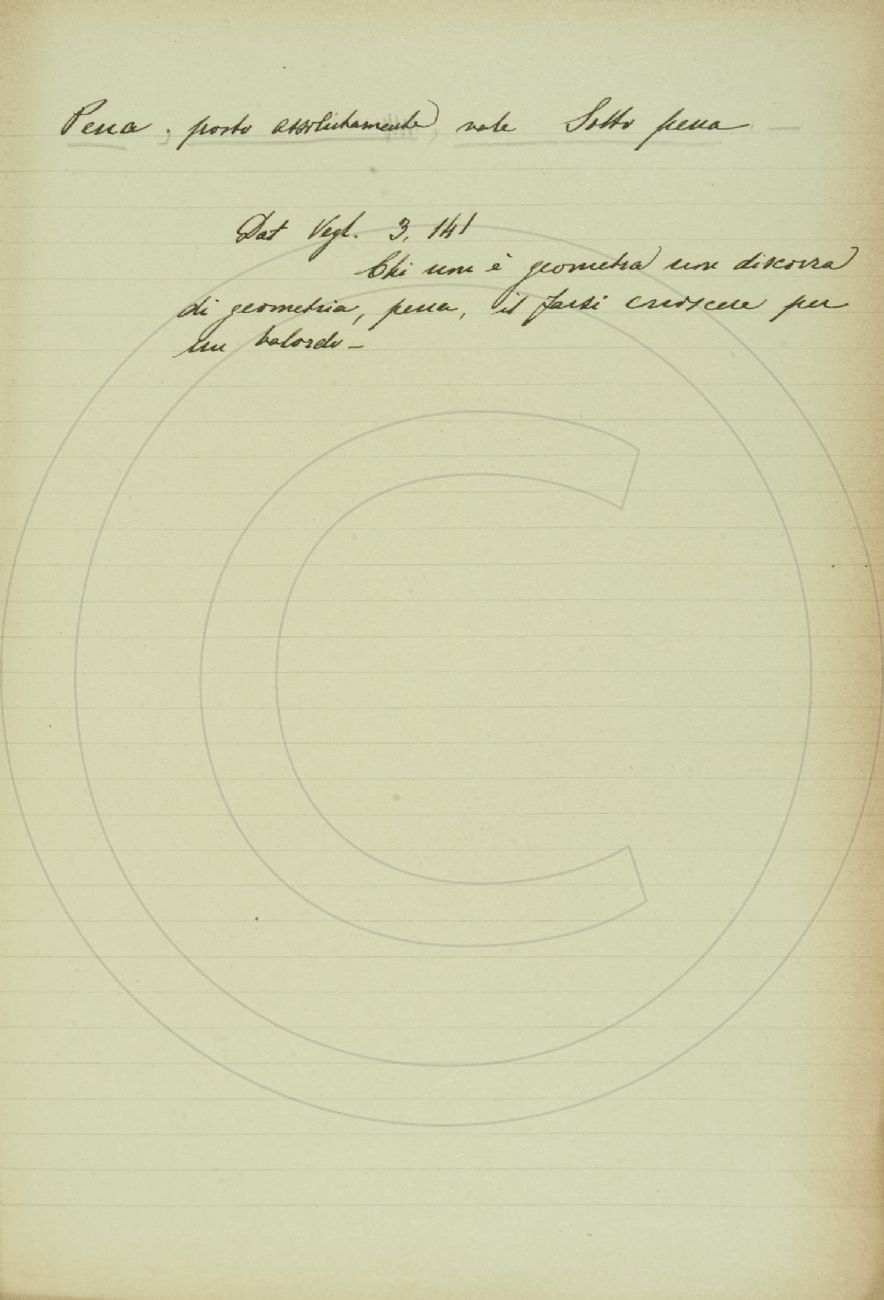 Pena. posto assolutamente vale Sotto pena —
Dat Vegl. 3, 141
Chi non è geometra non discorra
di geometria, pena, il farsi conoscere per
un balordo —